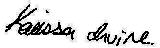 Karissa Irvine